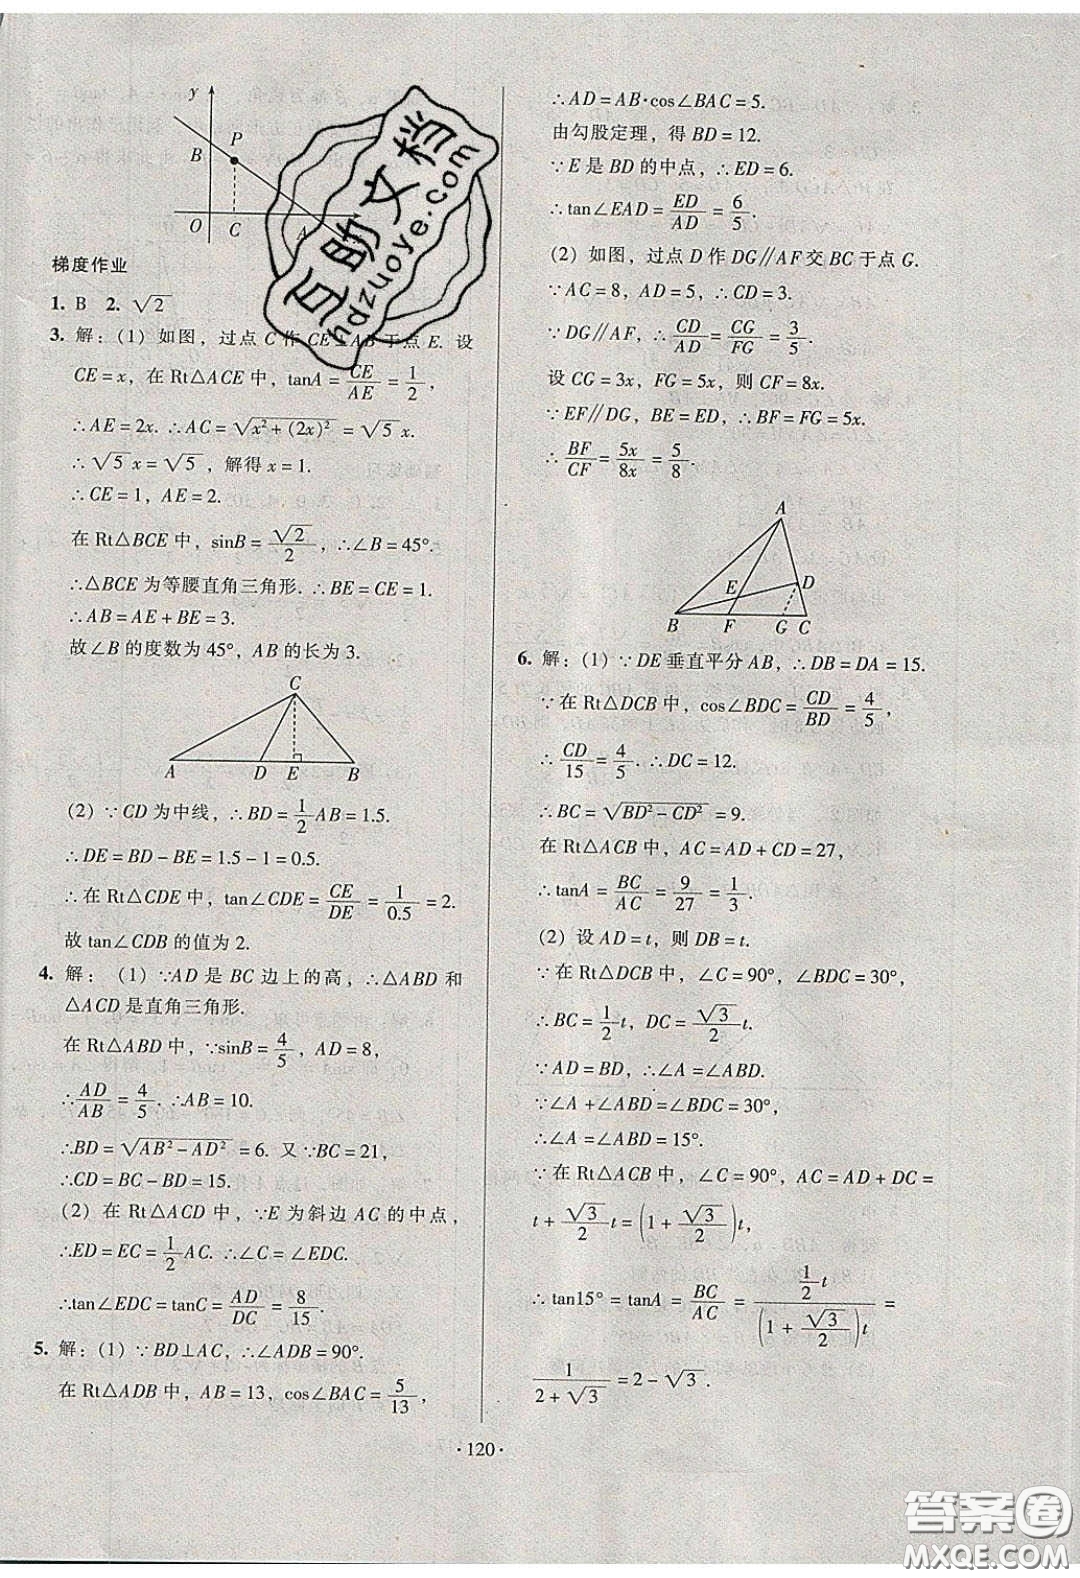 y
P
B
O C A
梯度作业
1. B 2. √2
3. 解：(1) 如图，过点 C 作 CE⊥AB 于点 E. 设
CE=x，在 Rt△ACE 中，tanA=CE/AE=1/2，
∴AE=2x. ∴AC=√(x²+(2x)²)=√5 x.
∴√5 x=√5，解得 x=1.
∴CE=1，AE=2.
在 Rt△BCE 中，sinB=√2/2，∴∠B=45°.
∴△BCE 为等腰直角三角形. ∴BE=CE=1.
∴AB=AE+BE=3.
故∠B 的度数为 45°，AB 的长为 3.
C
A D E B
(2) ∵CD 为中线，∴BD=1/2 AB=1.5.
∴DE=BD-BE=1.5-1=0.5.
∴在 Rt△CDE 中，tan∠CDE=CE/DE=1/0.5=2.
故 tan∠CDB 的值为 2.
4. 解：(1) ∵AD 是 BC 边上的高，∴△ABD 和
△ACD 是直角三角形.
在 Rt△ABD 中，∵sinB=4/5，AD=8，
∴AD/AB=4/5. ∴AB=10.
∴BD=√(AB²-AD²)=6. 又∵BC=21，
∴CD=BC-BD=15.
(2) 在 Rt△ACD 中，∵E 为斜边 AC 的中点，
∴ED=EC=1/2 AC. ∴∠C=∠EDC.
∴tan∠EDC=tanC=AD/DC=8/15.
5. 解：(1) ∵BD⊥AC，∴∠ADB=90°.
在 Rt△ADB 中，AB=13，cos∠BAC=5/13，
∴AD=AB·cos∠BAC=5.
由勾股定理，得 BD=12.
∵E 是 BD 的中点，∴ED=6.
∴tan∠EAD=ED/AD=6/5.
(2) 如图，过点 D 作 DG∥AF 交 BC 于点 G.
∵AC=8，AD=5，∴CD=3.
∵DG∥AF，∴CD/AD=CG/FG=3/5.
设 CG=3x，FG=5x，则 CF=8x.
∵EF∥DG，BE=ED，∴BF=FG=5x.
∴BF/CF=5x/8x=5/8.
A
E D
B F G C
6. 解：(1) ∵DE 垂直平分 AB，∴DB=DA=15.
∵在 Rt△DCB 中，cos∠BDC=CD/BD=4/5，
∴CD/15=4/5. ∴DC=12.
∴BC=√(BD²-CD²)=9.
在 Rt△ACB 中，AC=AD+CD=27，
∴tanA=BC/AC=9/27=1/3.
(2) 设 AD=t，则 DB=t.
∵在 Rt△DCB 中，∠C=90°，∠BDC=30°，
∴BC=1/2 t，DC=√3/2 t.
∵AD=BD，∴∠A=∠ABD.
∵∠A+∠ABD=∠BDC=30°，
∴∠A=∠ABD=15°.
∵在 Rt△ACB 中，∠C=90°，AC=AD+DC=
t+√3/2 t=(1+√3/2)t，
∴tan15°=tanA=BC/AC=(1/2 t)/((1+√3/2)t)=
1/(2+√3)=2-√3.
·120·
答案圈
MXQE.COM